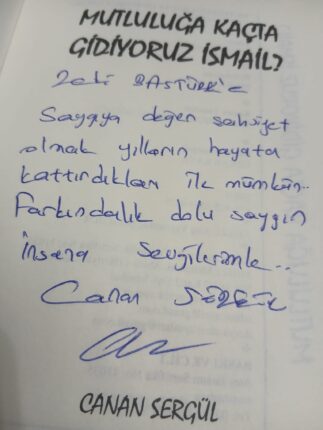 MUTLULUĞA KAÇTA
GİDİYORUZ İSMAİL?
Zeki BAŞTÜRK'e
Saygıya değen şahsiyet
olmak yılların hayata
kattırdıkları ile mümkün..
Farkındalık dolu saygın
insana sevgilerimle..
Canan SERGÜL
CANAN SERGÜL